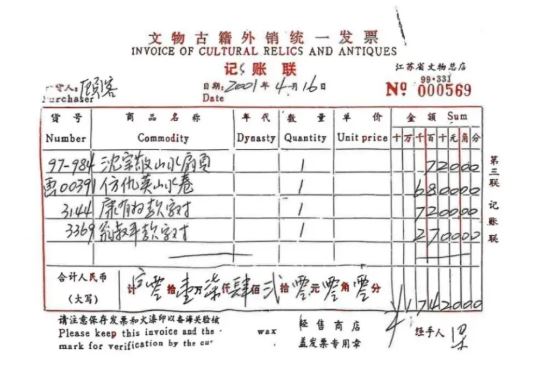 文物古籍外销统一发票
INVOICE OF CULTURAL RELICS AND ANTIQUES
记账联
江苏省文物总店
99·331
人: 顾客
Purchaser
日期: 2001年4月16日
Date
No 000569
货号 商品名称 年代 数量 单价 金额 Sum
Number Commodity Dynasty Quantity Unit price 十万千百十元角分
97-984 沈宗敬山水扇页 1 72000
00391 仿仇英山水卷 1 680000
3144 康有为款字对 1 720000
3369 翁叔平款字对 1 270000
合计人民币
(大写)
计 零拾壹万柒仟肆佰贰拾零元零角零分 ¥1742000
第三联 记账联
请注意保存发票和火漆印以备海关验核
Please keep this invoice and the wax
mark for verification by the cu
经售商店
盖发票专用章
经手人 梁